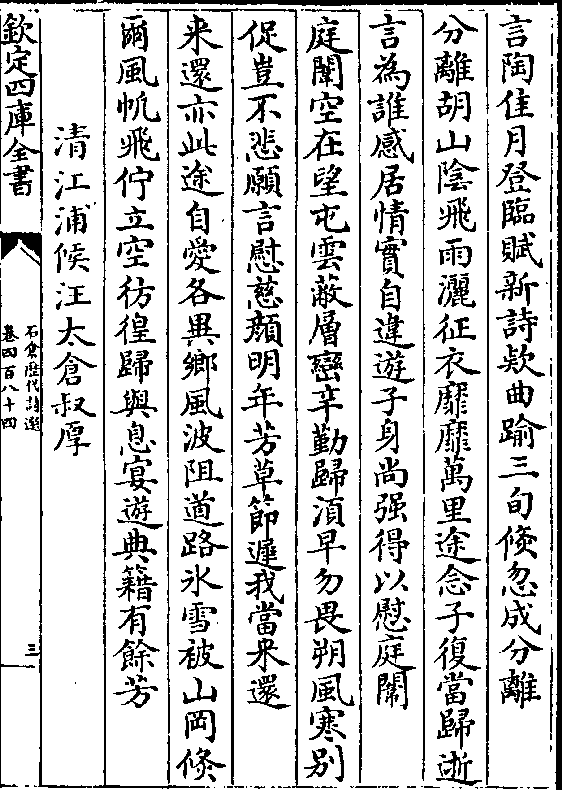 言陶佳月登臨賦新詩欵曲踰三旬倐忽成分離
分離胡山陰飛雨灑征衣靡靡萬里途念子復當歸逝
言為誰感居情實自違遊子身尚强得以慰庭闈
庭闈空在望屯雲蔽層巒辛勤歸湏早勿畏朔風寒别
促豈不悲願言慰慈顔明年芳草節遲我當来還
来還亦此途自愛各異鄉風波阻道路氷雪被山岡倐
爾風帆飛佇立空彷徨歸與息宴遊典籍有餘芳
清江浦候汪太倉叔厚
欽定四庫全書
石倉歴代詩選
卷四百八十四
三